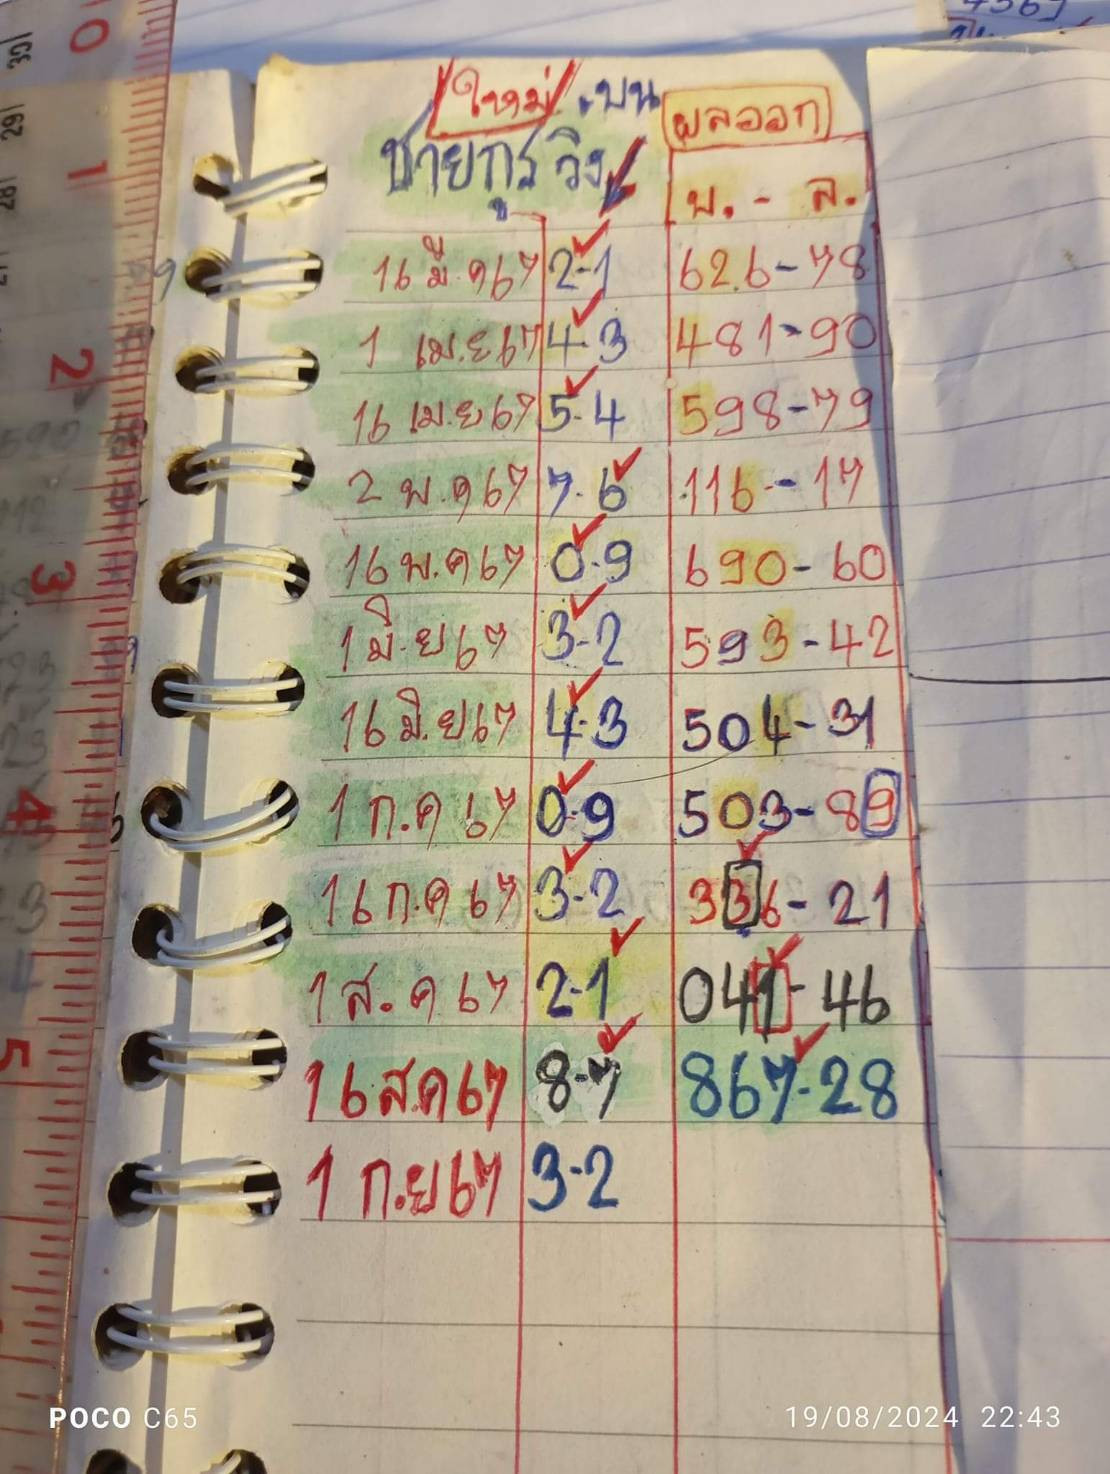 ใหม่ .บน
ผลออก
ชายกุรวิง
บ. - ล.
16 มี.ค67 2-1 626-78
1 เม.ย67 4-3 481-90
16 เม.ย67 5-4 598-79
2 พ.ค67 7-6 116-17
16 พ.ค67 0-9 690-60
1 มิ.ย67 3-2 593-42
16 มิ.ย67 4-3 504-31
1 ก.ค67 0-9 503-89
16 ก.ค67 3-2 336-21
1 ส.ค67 2-1 041-46
16 ส.ค67 8-7 867-28
1 ก.ย67 3-2
POCO C65
19/08/2024 22:43